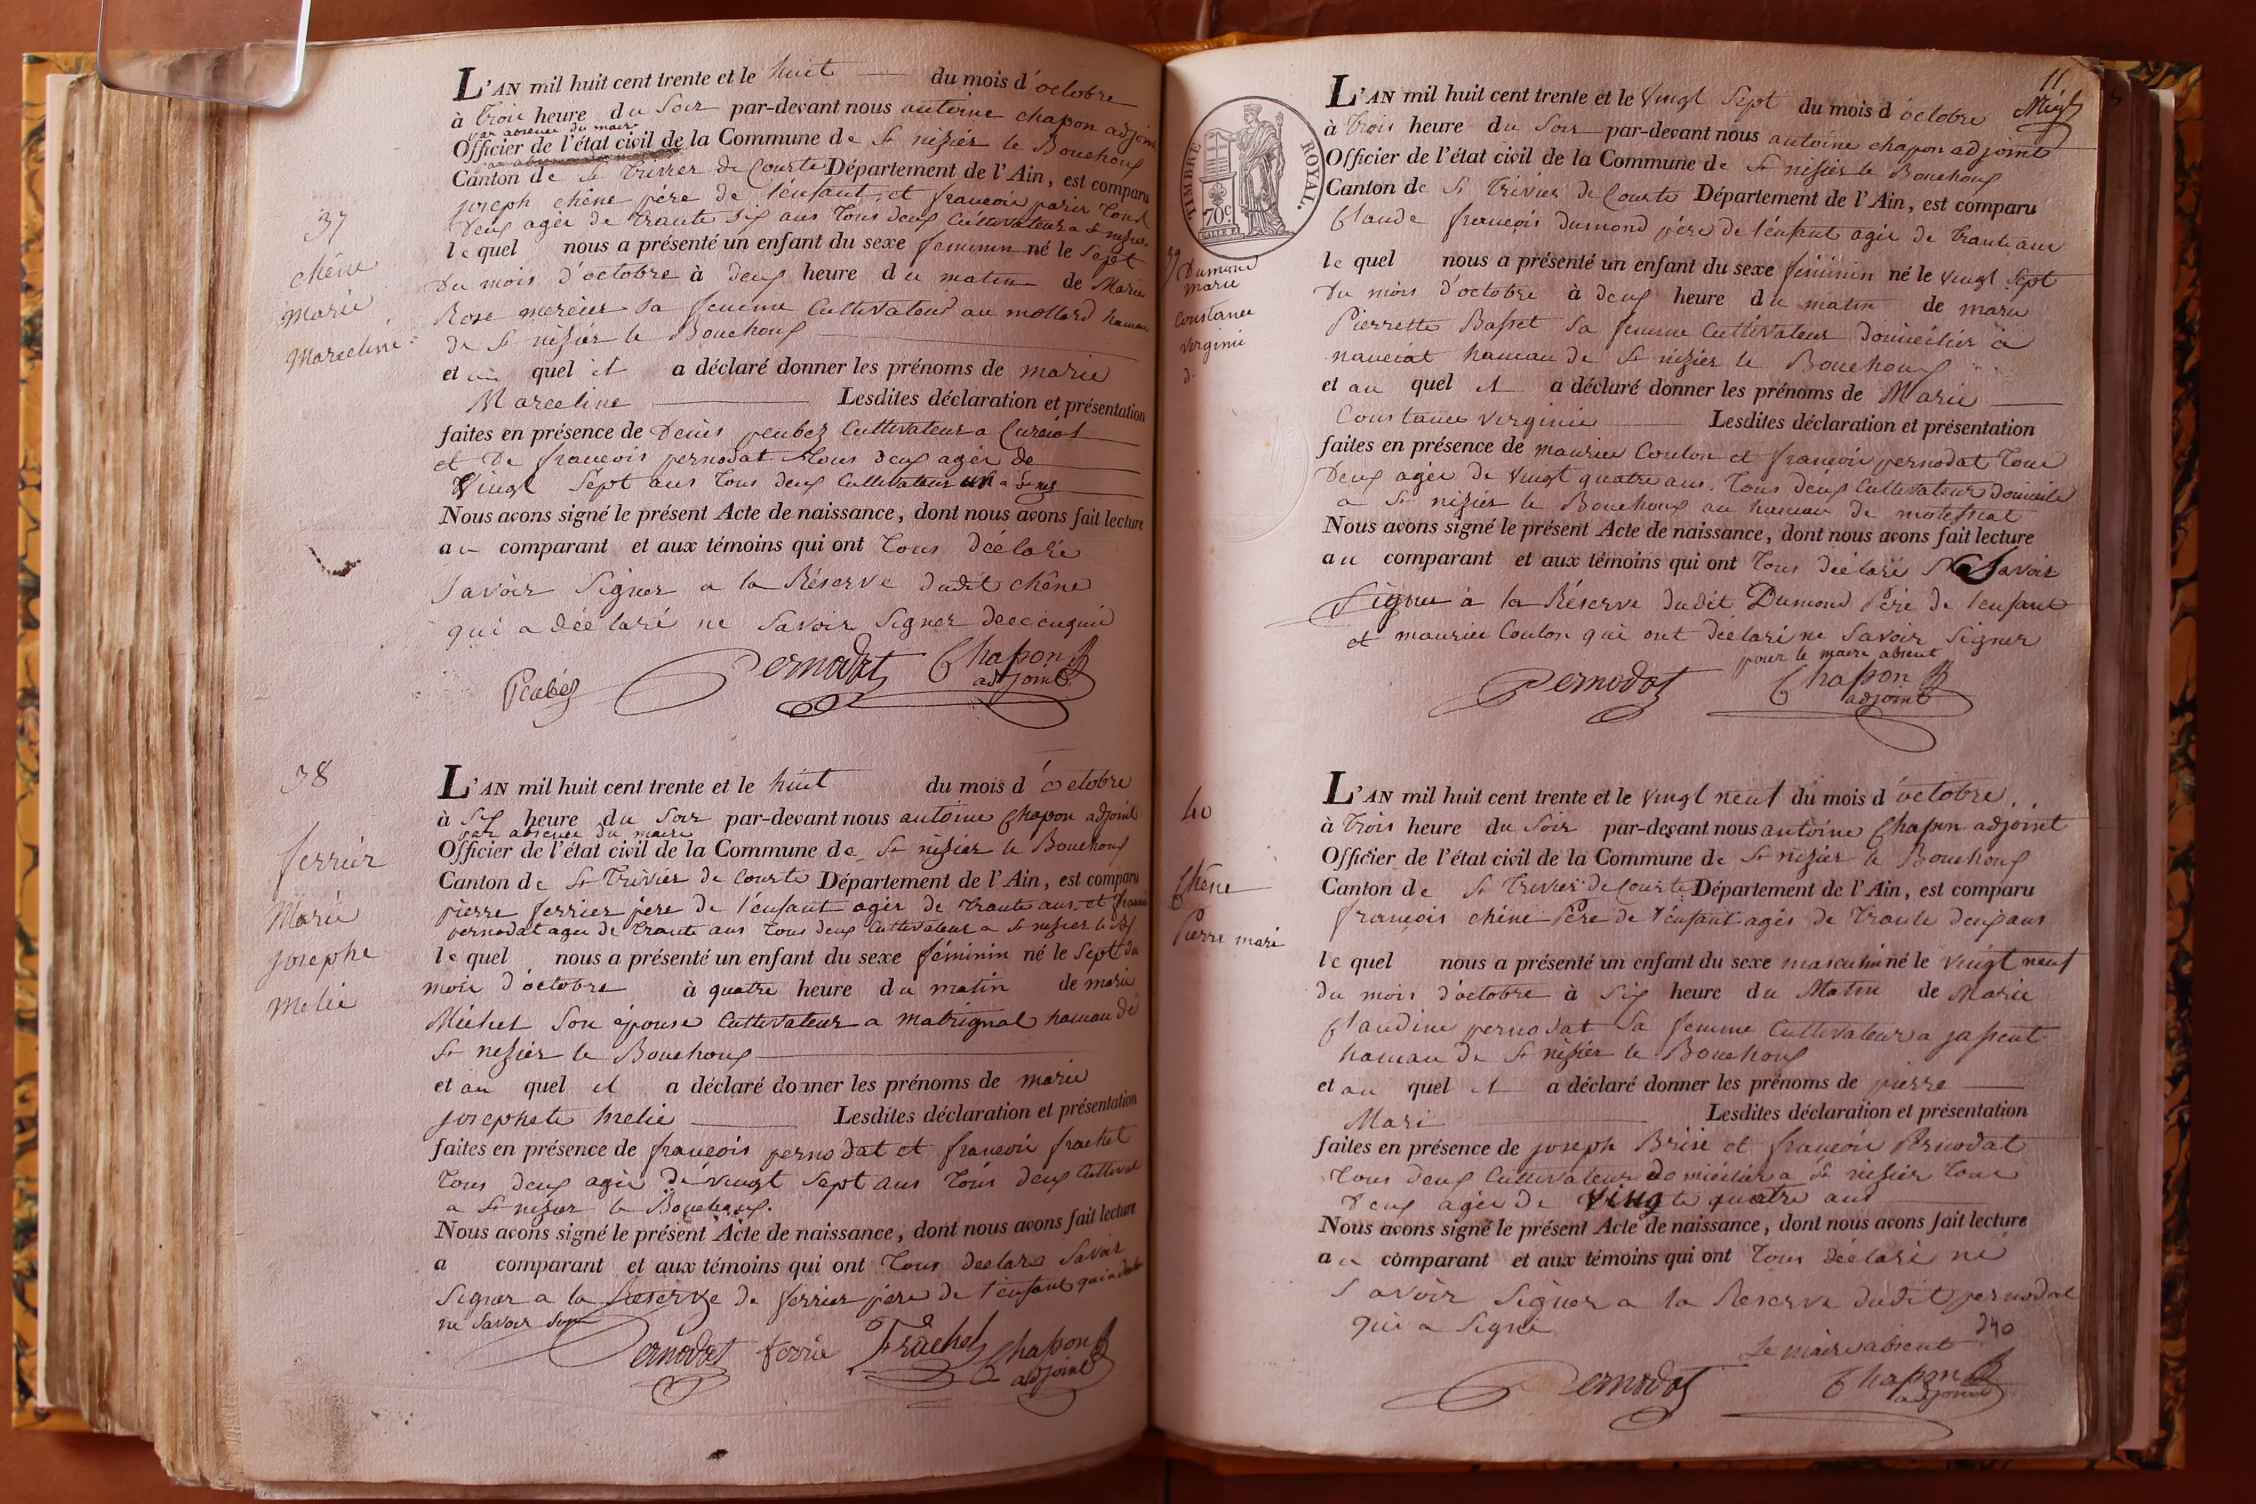 37
chêne
Marie
Marceline
L'AN mil huit cent trente et le huit du mois d'octobre
à trois heure du Soir par-devant nous antoine chapon adjoint
par absence du maire
Officier de l'état civil de la Commune de St nizier le Bouchoux
Canton de St trivier de Courte Département de l'Ain, est comparu
joseph chêne père de l'enfant, et françois parin tous
deux agés de trante six ans tous deux Cultivateur a St nizier
le quel nous a présenté un enfant du sexe feminin né le Sept
du mois d'octobre à deux heure du matin de Marie
Rose mercier sa femme Cultivateur au mollard hameau
de St nizier le Bouchoux
et au quel il a déclaré donner les prénoms de marie
Marceline Lesdites déclaration et présentation
faites en présence de denis peubez Cultivateur a Curciat
et de françois pernodat tous deux agés de
Vingt Sept ans tous deux Cultivateur a St niz
Nous avons signé le présent Acte de naissance, dont nous avons fait lecture
au comparant et aux témoins qui ont tous déclaré
Savoir Signer a la Réserve dudit chêne
qui a déclaré ne Savoir Signer de ce enquis
Pernodat Chapon
adjoint
38
ferrier
Marie
josephe
melie
L'AN mil huit cent trente et le huit du mois d'octobre
à six heure du Soir par-devant nous antoine Chapon adjoint
par absence du maire
Officier de l'état civil de la Commune de St nizier le Bouchoux
Canton de St Trivier de Courte Département de l'Ain, est comparu
pierre ferrier père de l'enfant agés de trante ans et françois
pernodat agés de trante ans tous deux Cultivateur a St nizier le Bx
le quel nous a présenté un enfant du sexe féminin né le Sept du
mois d'octobre à quatre heure du matin de marie
Michel Son épouse Cultivateur a matrignat hameau de
St nizier le Bouchoux
et au quel il a déclaré donner les prénoms de marie
josephete melie Lesdites déclaration et présentation
faites en présence de françois pernodat et françois frachet
tous deux agés de vingt Sept ans tous deux Cultivat
a St nizier le Bouchoux.
Nous avons signé le présent Acte de naissance, dont nous avons fait lecture
a comparant et aux témoins qui ont tous declaré Savoir
Signer a la Reserve de ferrier père de l'enfant qui a déclaré
ne Savoir Sign
Pernodat ferrie Frachet Chapon
adjoint
11
TIMBRE ROYAL.
70c
39
Dumond
marie
Constance
virginie
L'AN mil huit cent trente et le vingt Sept du mois d'octobre
à trois heure du Soir par-devant nous antoine chapon adjoint
Officier de l'état civil de la Commune de St nizier le Bouchoux
Canton de St Trivier de Courte Département de l'Ain, est comparu
Claude françois dumond père de l'enfant agés de trante ans
le quel nous a présenté un enfant du sexe féminin né le vingt Sept
du mois d'octobre à deux heure du matin de marie
Pierrette Basset Sa femme Cultivateur domicilier à
nanciat hameau de St nizier le Bouchoux
et au quel il a déclaré donner les prénoms de Marie
Constance virginie Lesdites déclaration et présentation
faites en présence de maurice Coulon et françois pernodat tous
deux agés de vingt quatre ans. tous deux Cultivateur domicile
a St nizier le Bouchoux au hameau de
Nous avons signé le présent Acte de naissance, dont nous avons fait lecture
au comparant et aux témoins qui ont tous déclaré Savoir
Signer à la Réserve dudit Dumond Père de l'enfant
et maurice Coulon qui ont déclaré ne Savoir Signer
pour le maire absent
Pernodat Chapon
adjoint
40
Chêne
Pierre mari
L'AN mil huit cent trente et le vingt neuf du mois d'octobre
à trois heure du Soir par-devant nous antoine Chapon adjoint
Officier de l'état civil de la Commune de St nizier le Bouchoux
Canton de St Trivier de Courte Département de l'Ain, est comparu
françois chêne Père de l'enfant agés de trante deux ans
le quel nous a présenté un enfant du sexe masculin né le vingt neuf
du mois d'octobre à Six heure du Matin de Marie
Claudine pernodat Sa femme Cultivateur a
hameau de St nizier le Bouchoux
et au quel il a déclaré donner les prénoms de pierre
Mari Lesdites déclaration et présentation
faites en présence de joseph et françois Pernodat
tous deux Cultivateur domicilier a St nizier tous
deux agés de Vingt quatre ans
Nous avons signé le présent Acte de naissance, dont nous avons fait lecture
au comparant et aux témoins qui ont tous déclaré ne
Savoir Signer a la Reserve dudit pernodat
qui a Signé
Le maire absent
Pernodat Chapon
adjoint